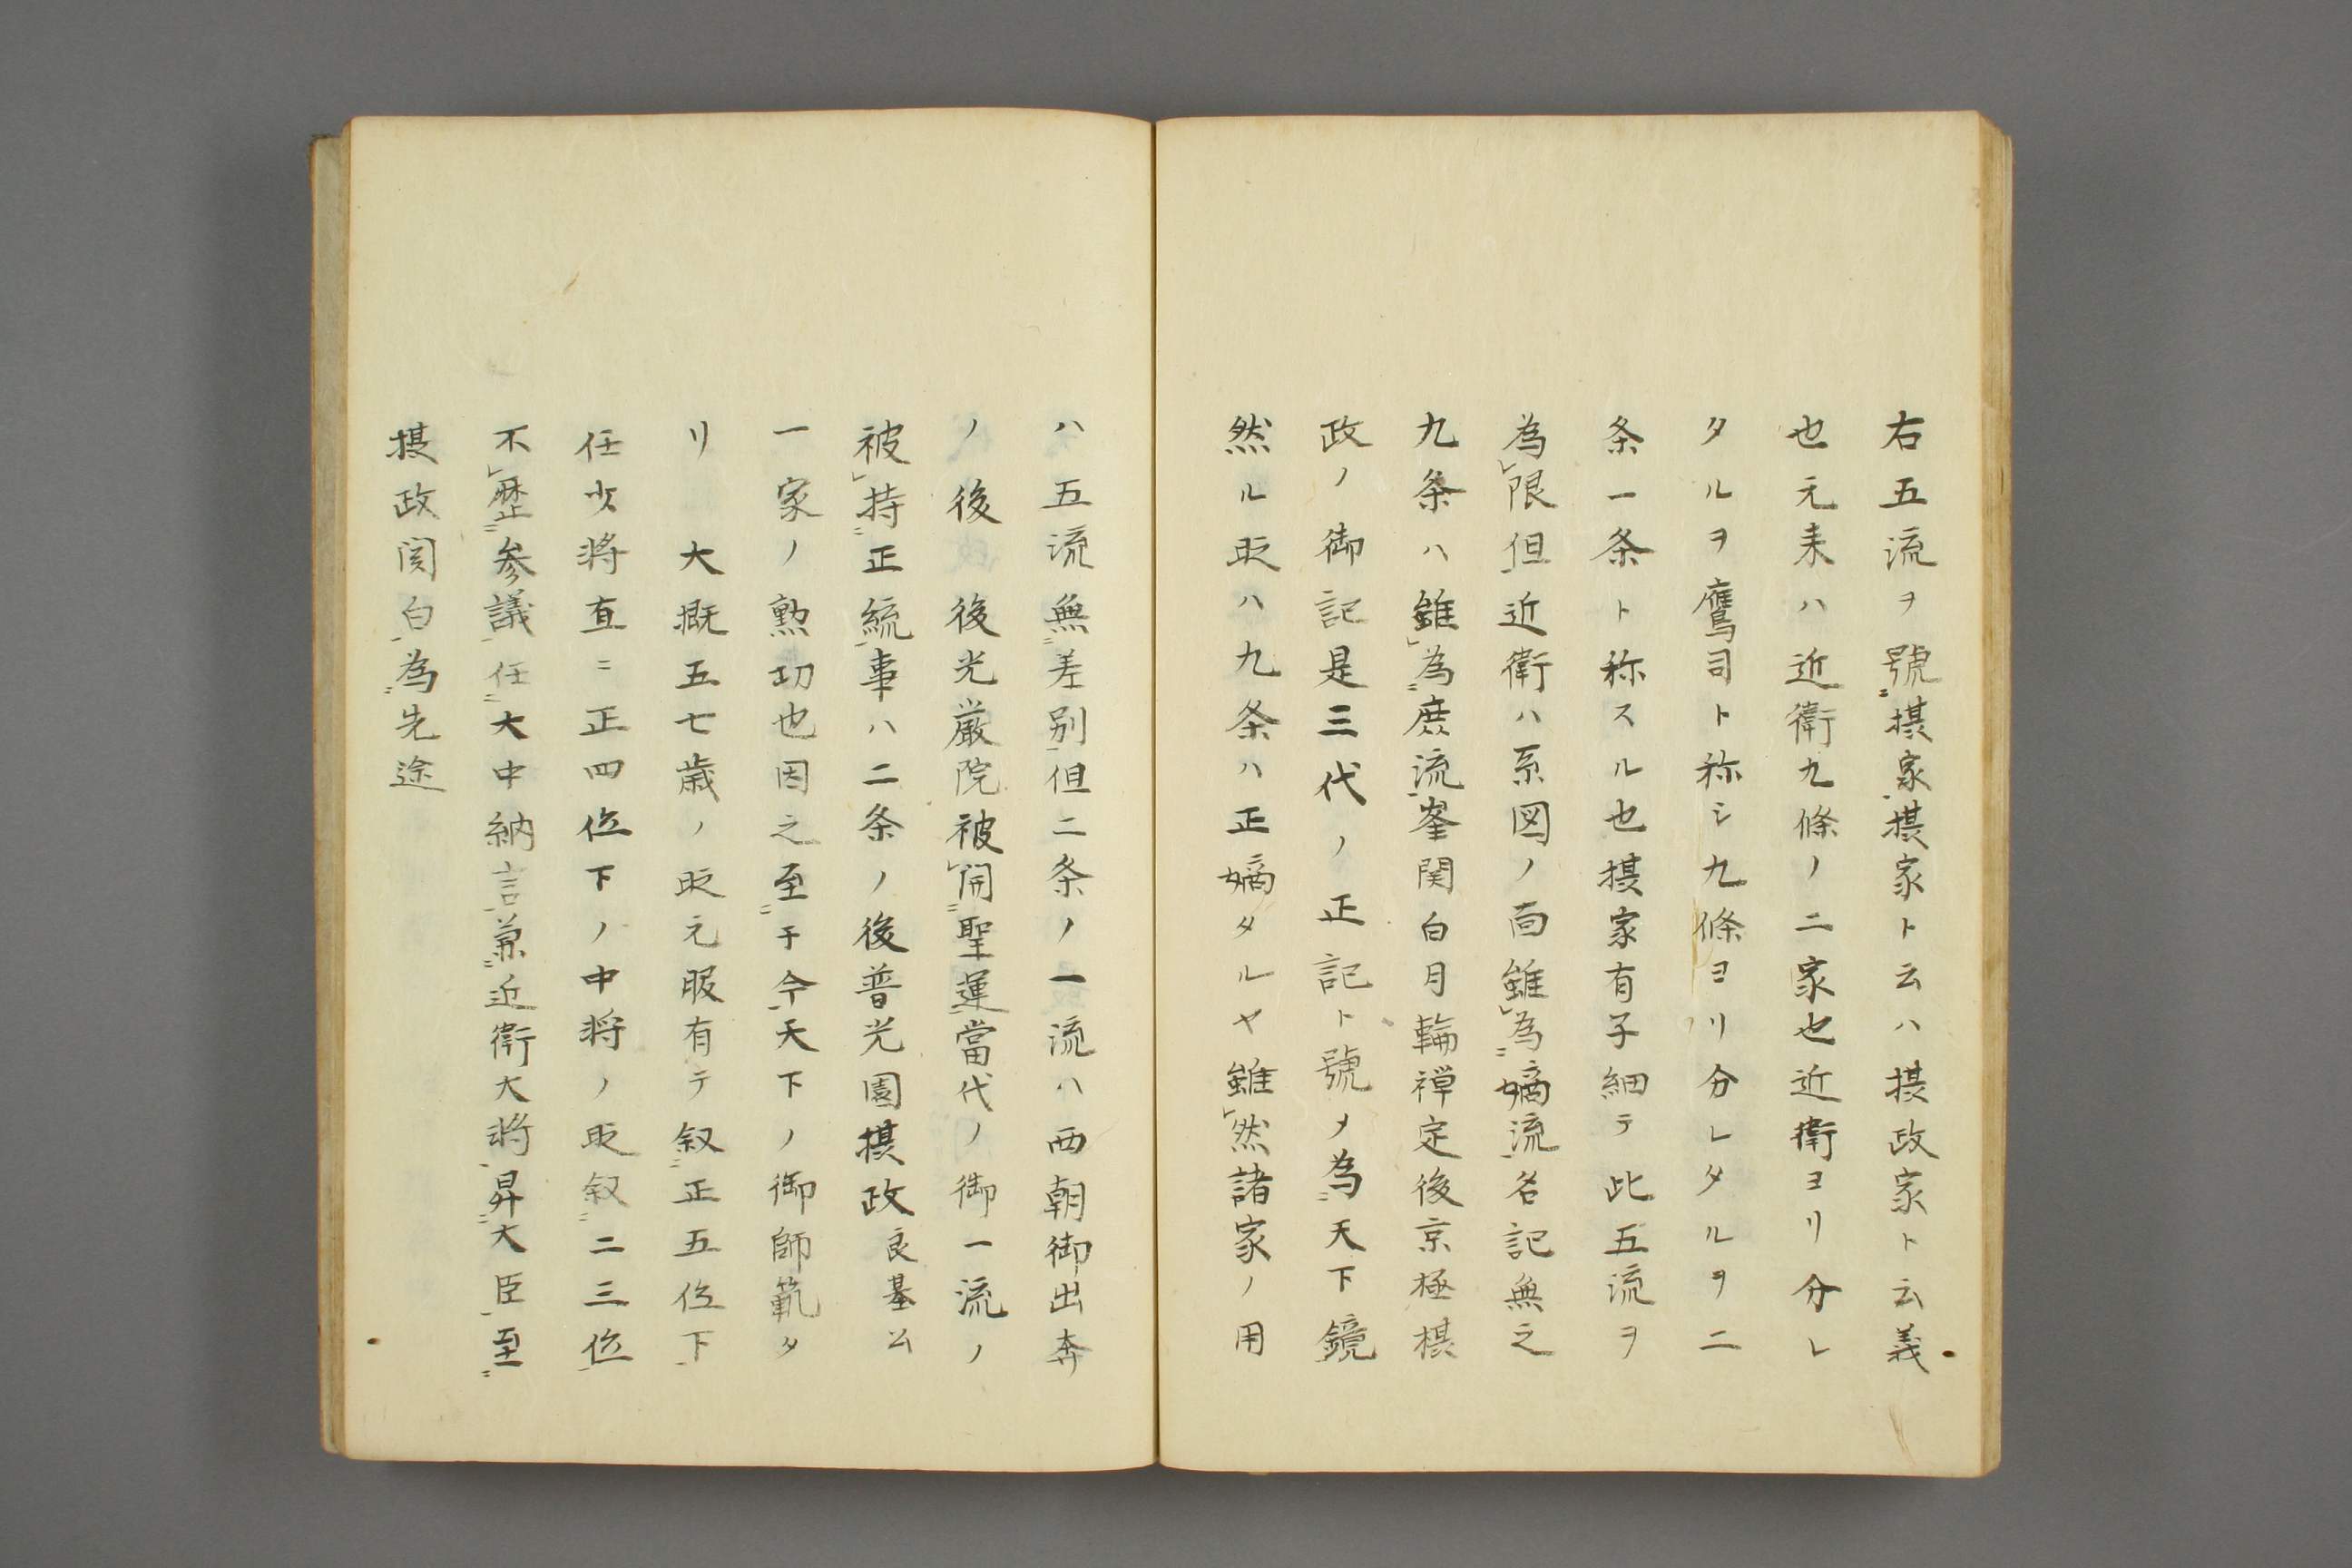 右五流ヲ號摂家摂家ト云ハ摂政家ト云義
也元来ハ近衛九條ノ二家也近衛ヨリ分レ
タルヲ鷹司ト称シ九條ヨリ分レタルヲ二
条一条ト称スル也摂家有子細テ此五流ヲ
為限但近衛ハ系図ノ面雖為嫡流名記無之
九条ハ雖為庶流峯関白月輪禅定後京極摂
政ノ御記是三代ノ正記ト號メ為天下鏡
然ル时ハ九条ハ正嫡タルヤ雖然諸家ノ用
ハ五流無差別但二条ノ一流ハ両朝御出奔
ノ後後光厳院被開聖運當代ノ御一流ノ
被持正統事ハ二条ノ後普光園摂政良基公
一家ノ勲功也因之至于今天下ノ御師範タ
リ　大概五七歳ノ时元服有テ叙正五位下
任少将直ニ正四位下ノ中将ノ时叙二三位
不歴参議任大中納言兼近衛大将昇大臣至
摂政関白為先途